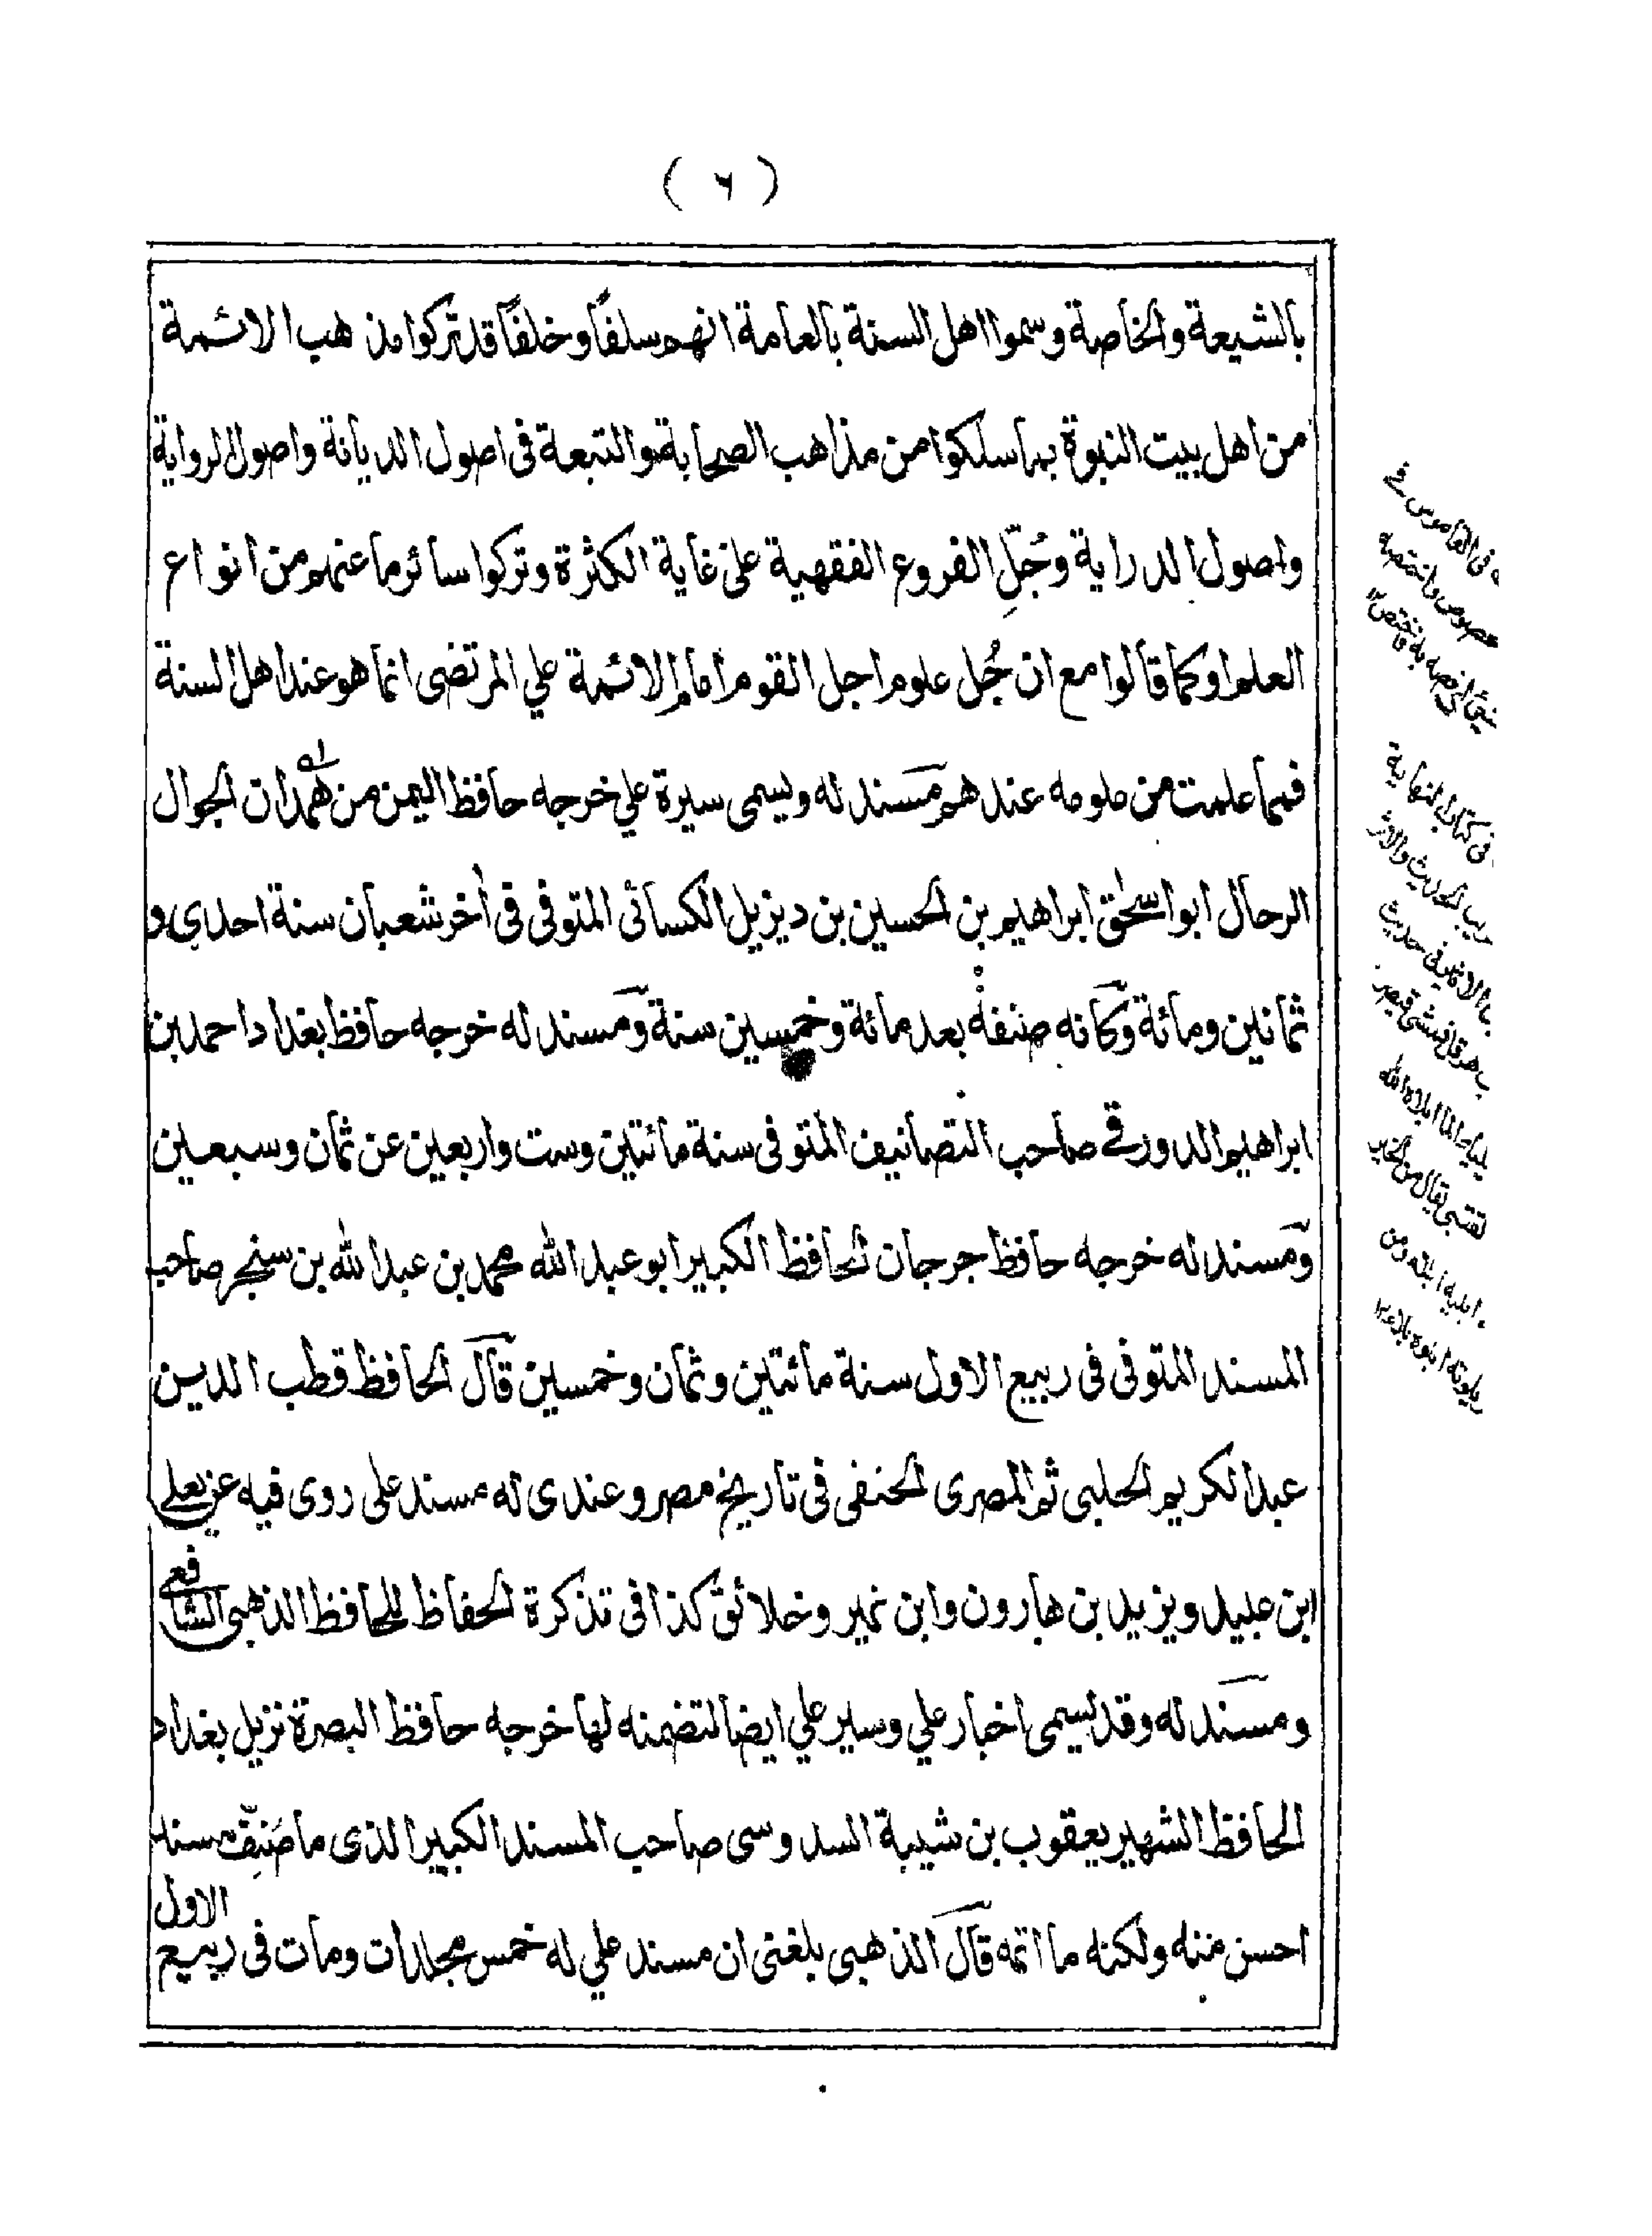 ( ٦ )
بالشيعة والخاصة وسموا اهل السنة بالعامة انهم سلفًا وخلفًا قد تركوا مذهب الائمة
من اهل بيت النبوة بما سلكوا من مذاهب الصحابة والتبعة فى اصول الديانة واصول الرواية
واصول الدراية وجُلّ الفروع الفقهية على غاية الكثرة وتركوا سائر ما عنهم من انواع
العلم او كما قالوا مع ان جُل علوم اجل القوم امام الائمة علي المرتضى انما هو عند اهل السنة
فمما علمت من علومه عندهم مسند له ويسمى سيرة علي خرجه حافظ اليمن من همدان الجوال
الرحال ابو اسحٰق ابراهيم بن الحسين بن ديزيل الكسائى المتوفى فى أخر شعبان سنة احدي و
ثمانين ومائة وكانه صنفه بعد مائة وخمسين سنة ومسند له خرجه حافظ بغداد احمد بن
ابراهيم الدورقے صاحب التصانيف المتوفى سنة مائتين وست واربعين عن ثمان وسبعين
ومسند له خرجه حافظ جرجان الحافظ الكبير ابو عبد الله محمد بن عبد الله بن سنجر صاحب
المسند المتوفى فى ربيع الاول سنة مائتين وثمان وخمسين قال الحافظ قطب الدين
عبد الكريم الحلبى ثم المصرى الحنفى فى تاريخ مصر وعندى له مسند على روى فيه عن يعلى
ابن عبيد ويزيد بن هارون وابن نمير وخلائق كذا فى تذكرة الحفاظ للحافظ الذهبى الشافعى
ومسند له وقد يسمى اخبار علي وسير علي ايضا لتضمنه لها خرجه حافظ البصرة نزيل بغداد
الحافظ الشهير يعقوب بن شيبة السدوسى صاحب المسند الكبير الذى ما صُنِّف مسند
احسن منه ولكنه ما اتمه قال الذهبى بلغنى ان مسند علي له خمس مجلدات ومات فى ربيع الاول
فى القاموس
فى كتاب النهاية